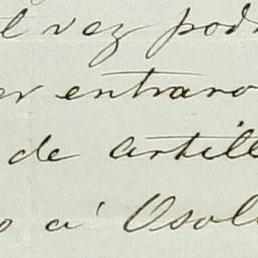 l vez podr
er entraro
de Artill
o a' Osoll